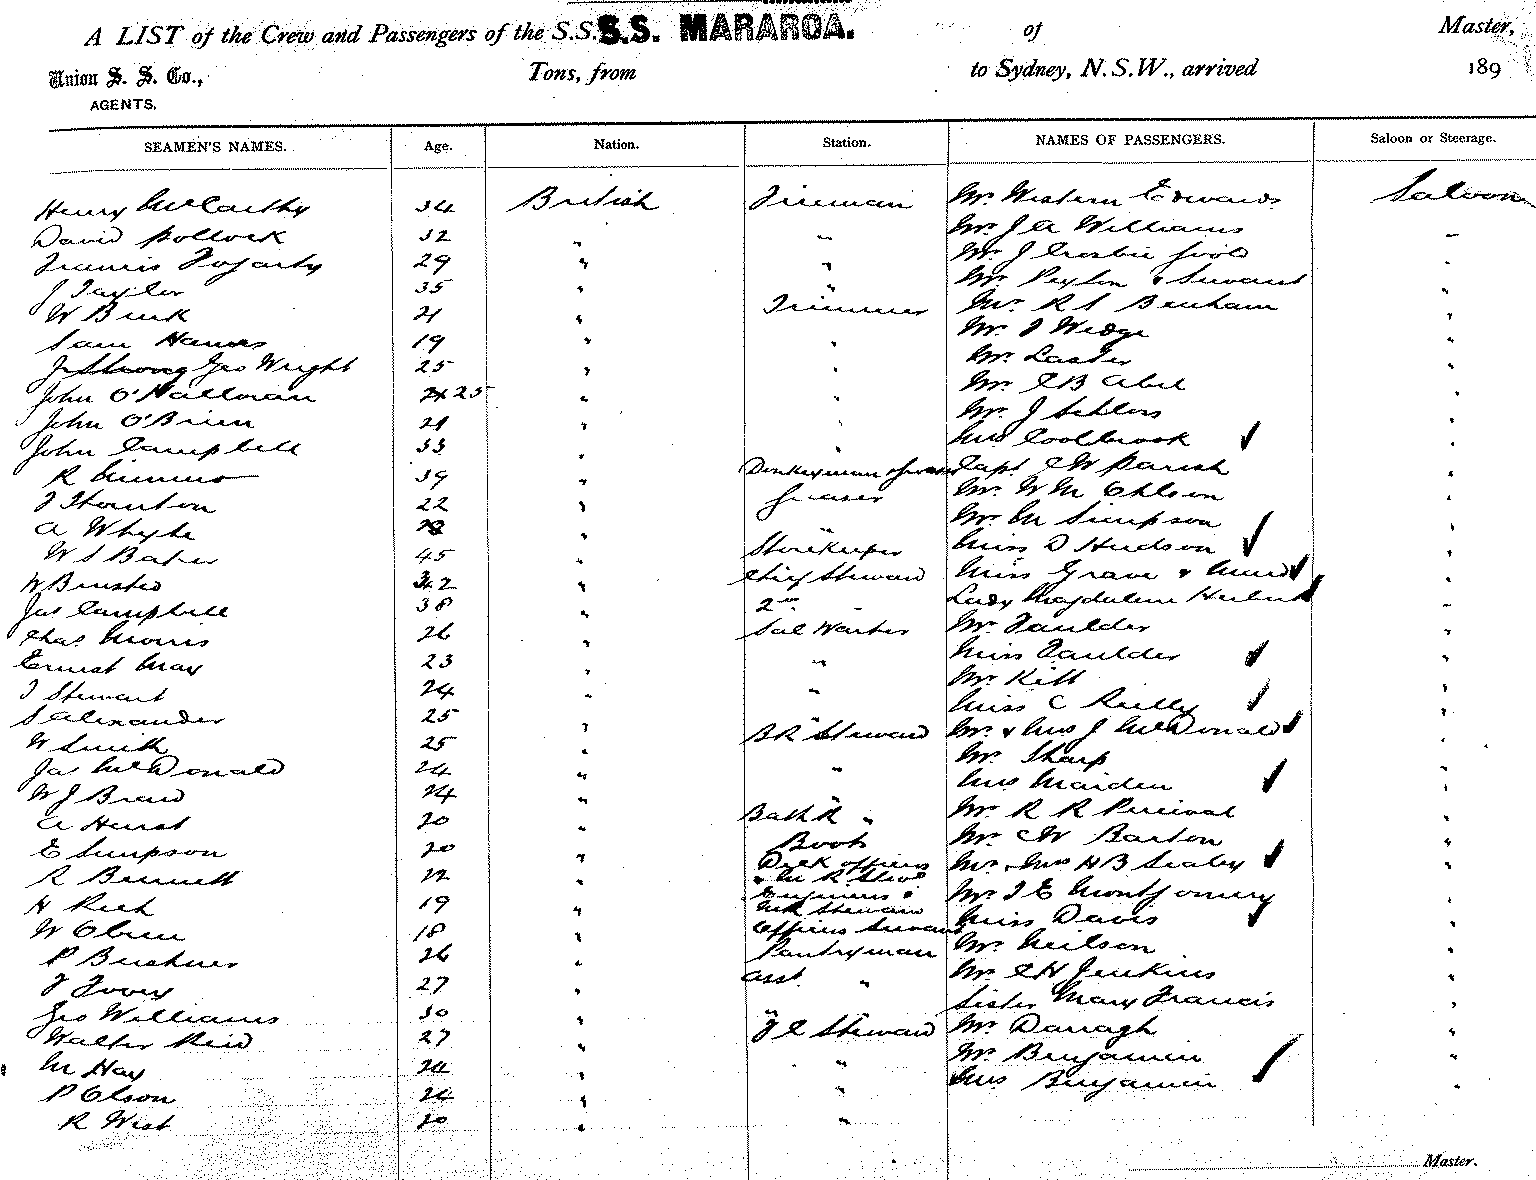 A LIST of the Crew and Passengers of the S.S. S.S. MARAROA. of Master,
Union S. S. Co., Tons, from to Sydney, N.S.W., arrived 189
AGENTS.
SEAMEN'S NAMES. Age. Nation. Station. NAMES OF PASSENGERS. Saloon or Steerage.
Henry McCarthy 34 British Fireman Mr Western Edwards Saloon
David Pollock 32 " " Mr J A Williams "
Francis Fogarty 29 " " Mr J Crosbie "
J Taylor 35 " " Mr Peyton & Servant "
W 21 " Trimmer Mr R S Benham "
Sam 19 " Mr Wedge "
Geo Wright 25 " " Mr "
John O'Halloran 25 " " Mr C B Abel "
John O'Brien 21 " " Mr J Schloss "
John Campbell 33 " " Mrs Coolbrook "
R 39 " Donkeyman Capt C W Parish "
Thornton 22 " Greaser Mr W M Ohlson "
A Whyte " " Mr M Simpson "
W S Baker 45 " Storekeeper Miss D Hudson "
W 42 " Chief Steward Miss Grave & "
Jas Campbell 38 " 2nd " Lady Magdalene Herbert "
Chas Morris 26 " Sal Waiter Mr Faulder "
Ernest May 23 " " Miss Faulder "
J Stewart 24 " " Mr "
S Alexander 25 " " Miss C Reilly "
W Smith 25 " B R Steward Mr & Mrs J McDonald "
Jas McDonald 24 " " Mr Sharp "
W J 24 " " Mrs Maiden "
A Hurst 20 " Bath R " Mr R R Percival "
E Simpson 20 " Boots Mr C W Barton "
R Bennett 22 " Deck officers Mr & Mrs H B Sealey "
H Rich 19 " Engineers Mr J E Montgomery "
W Olsen 18 " Officers Servant Miss Davis "
P 26 " Pantryman Mr Neilson "
27 " Asst " Mr C H Jenkins "
Geo Williams 30 " " Sister Mary Francis "
Walter Reid 27 " F C Steward Mr Darragh "
M Hay 24 " " Mr Benjamin "
P Olson 24 " " Mrs Benjamin "
R West 20 " "
Master.